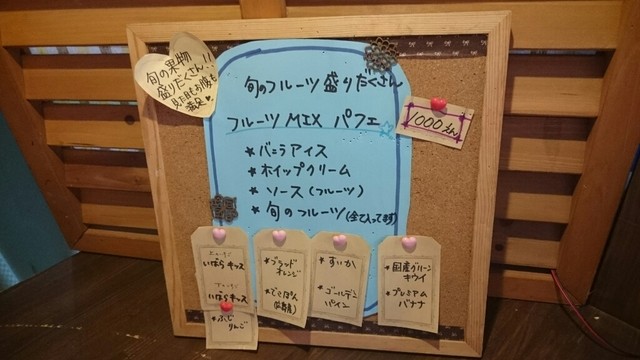 旬の果物
盛りだくさん!!
見た目もお腹も
満足♥
旬のフルーツ盛りだくさん
フルーツ MIX パフェ☆
1000えん
★バニラアイス
★ホイップクリーム
★ソース(フルーツ)
★旬のフルーツ(全て入ってます)
いばらキッス
いばらキッス
★ふじ
りんご
★ブラッド
オレンジ
★でこぽん
★すいか
★ゴールデン
パイン
★国産グリーン
キウイ
★プレミアム
バナナ